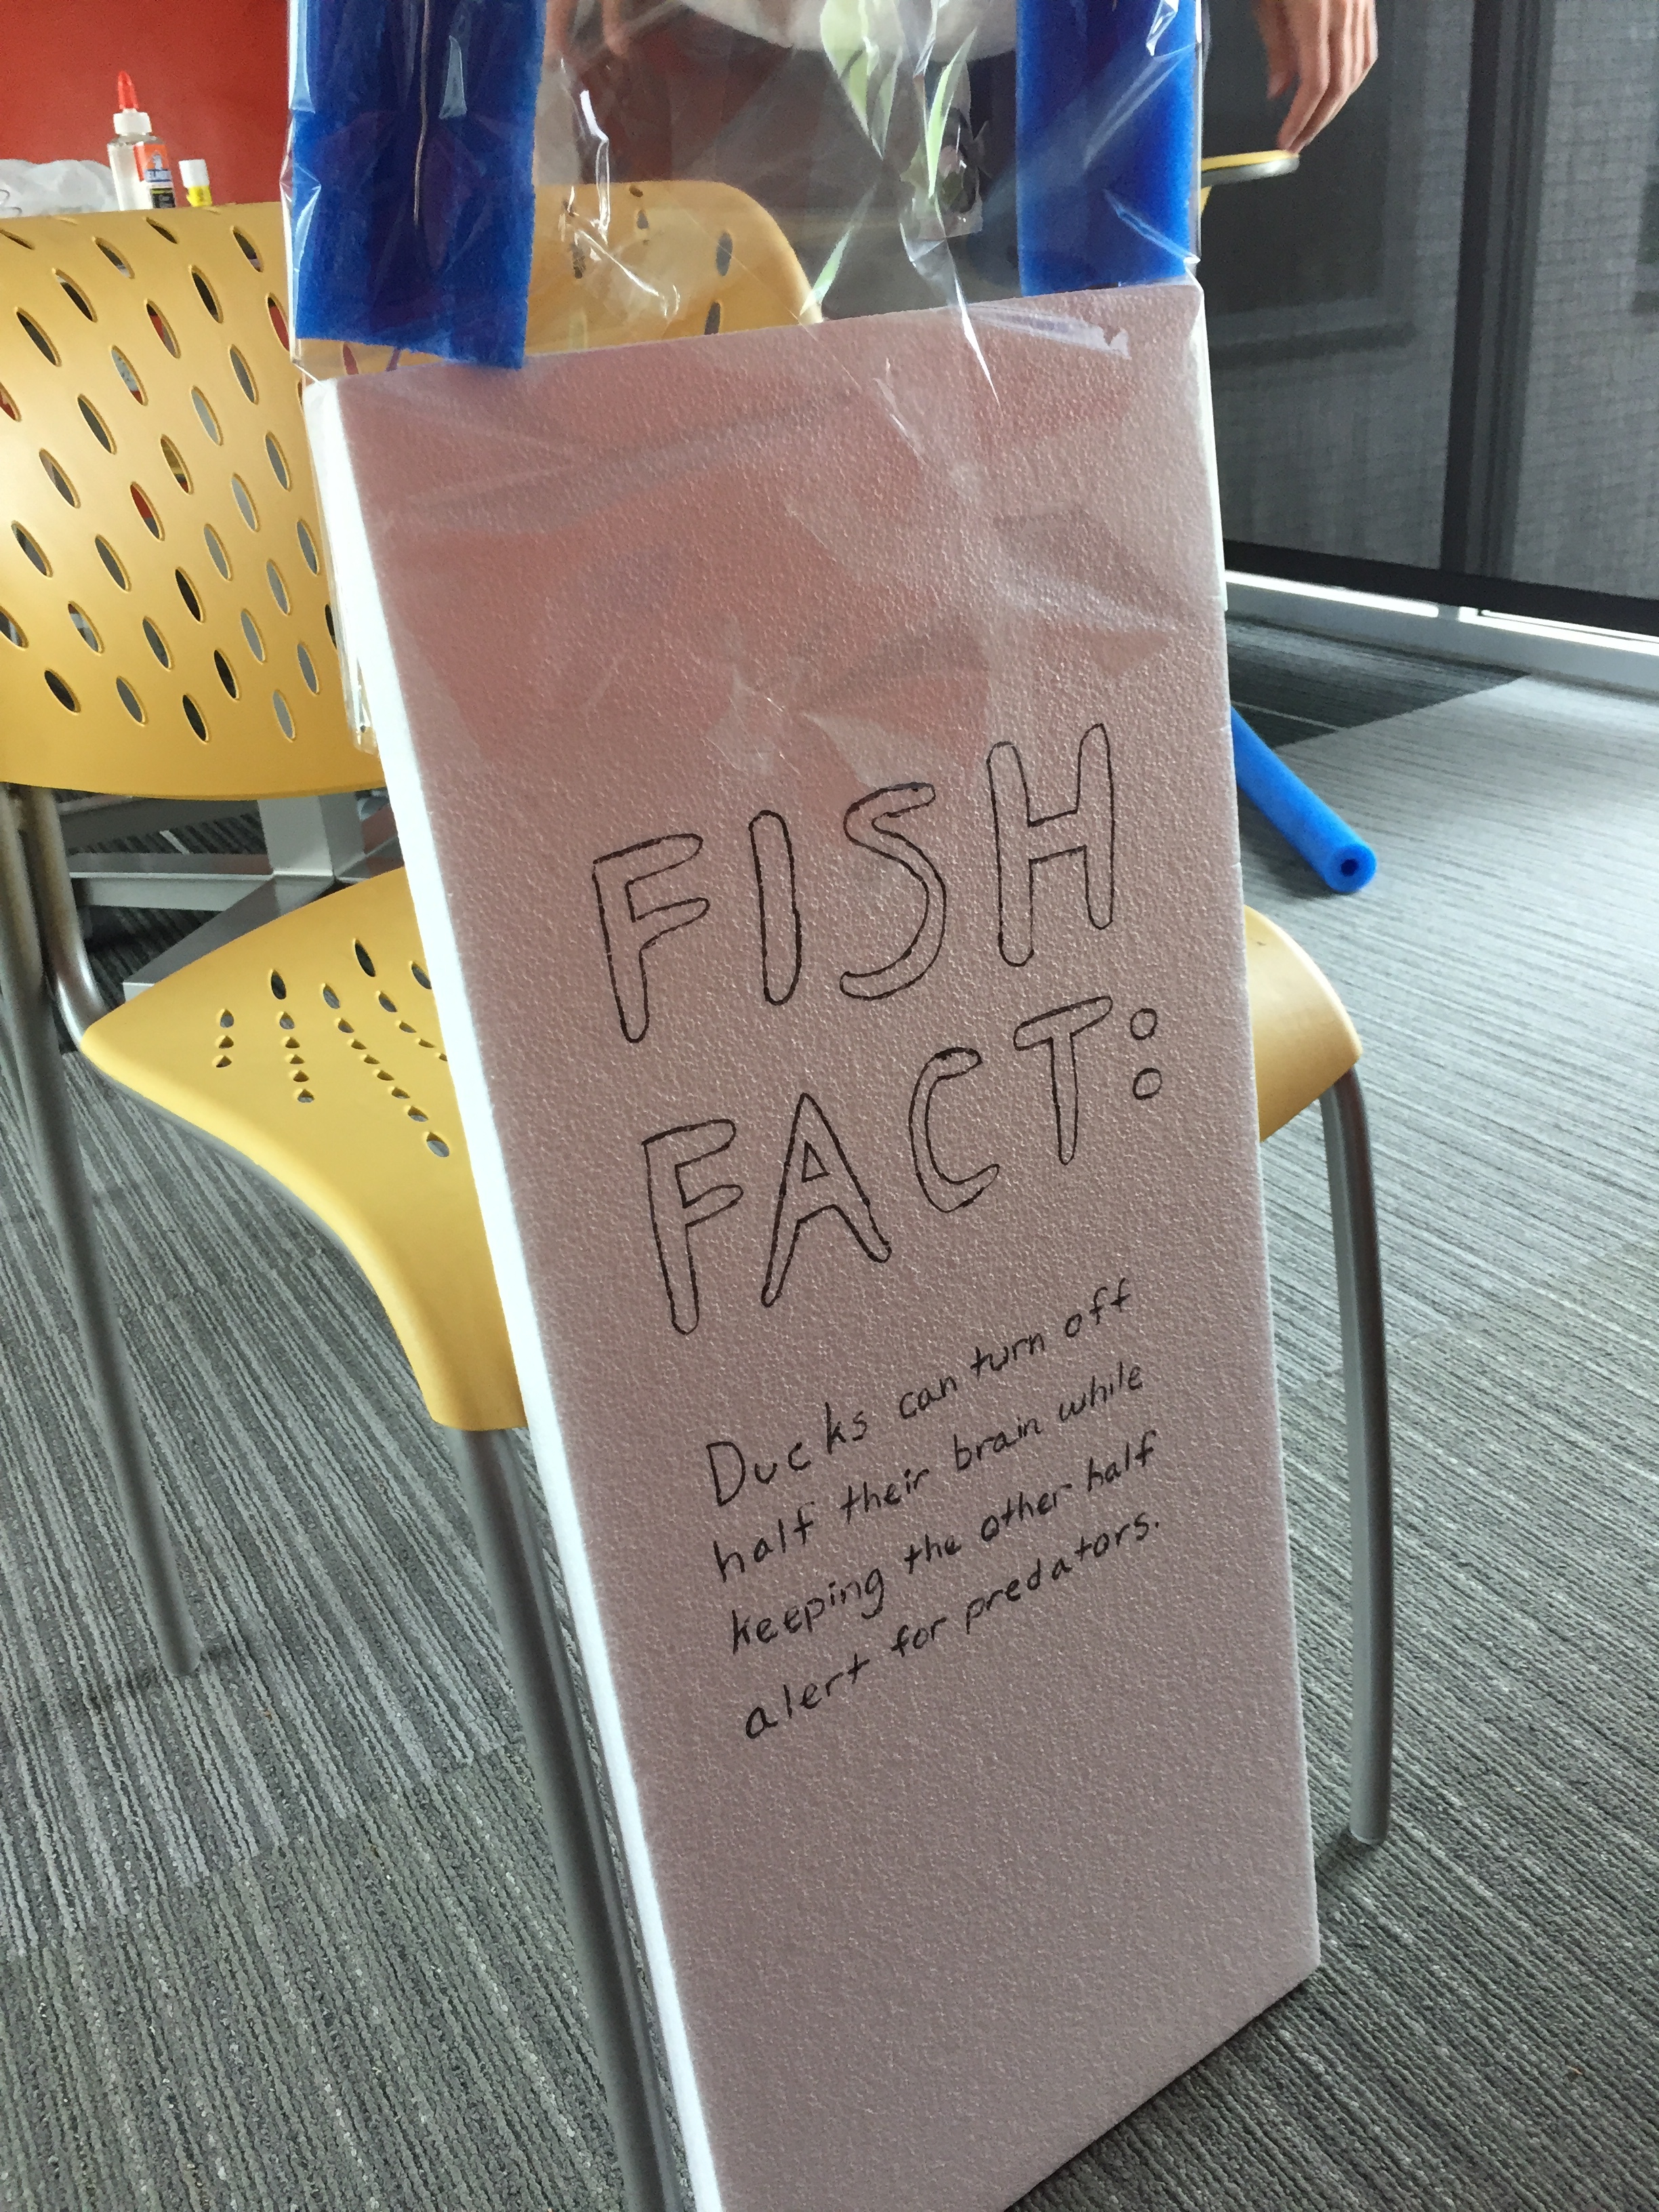 FISH
FACT:
Ducks can turn off
half their brain while
keeping the other half
alert for predators.